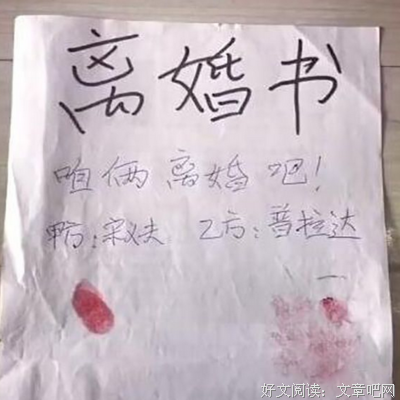 离婚书
咱俩离婚吧!
甲方:宋义夫 乙方:普拉达
好文阅读:文章吧网